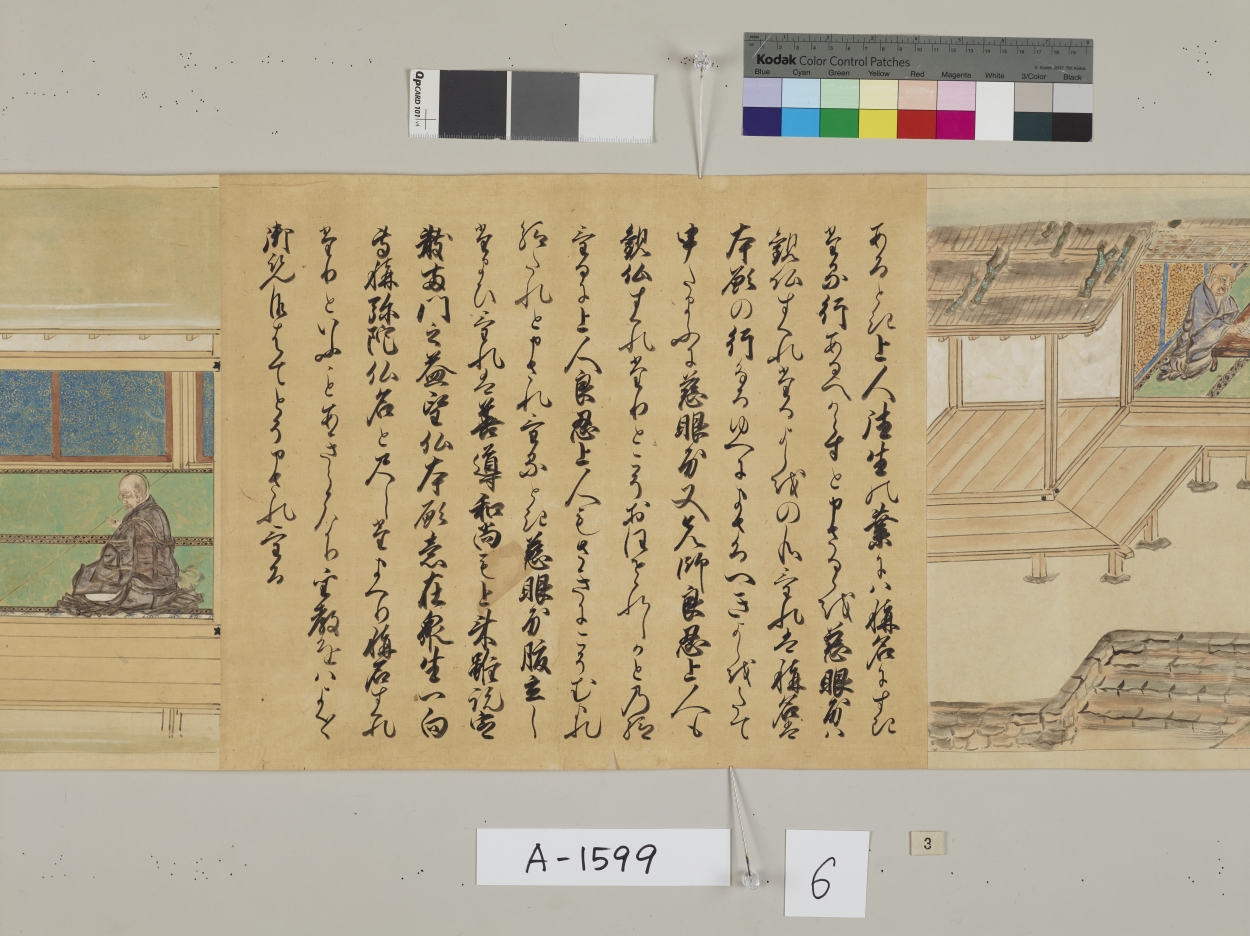 あるとき上人往生の業には称名にすき
たる行あるへからすと申さるるを慈眼房は
観仏すくれたるよしをの給けれは称名は
本願の行なるゆへにまさるへきよしをたて
申たまふに慈眼房又先師良忍上人も
観仏すくれたりとこそおほせられしかとの給
けるに上人良忍上人もさきにこそむまれ
給たれと申されけるとき慈眼房腹立し
たまひけれは善導和尚も上来雖説定
散両門之益望仏本願意在衆生一向
専称弥陀仏名と尺したまへり称名すくれ
たりといふことあきらかなり聖教をはよくよく
御覧候はてとそ申されける
QPCARD 101
Kodak Color Control Patches
Blue Cyan Green Yellow Red Magenta White 3/Color Black
A-1599
6
3